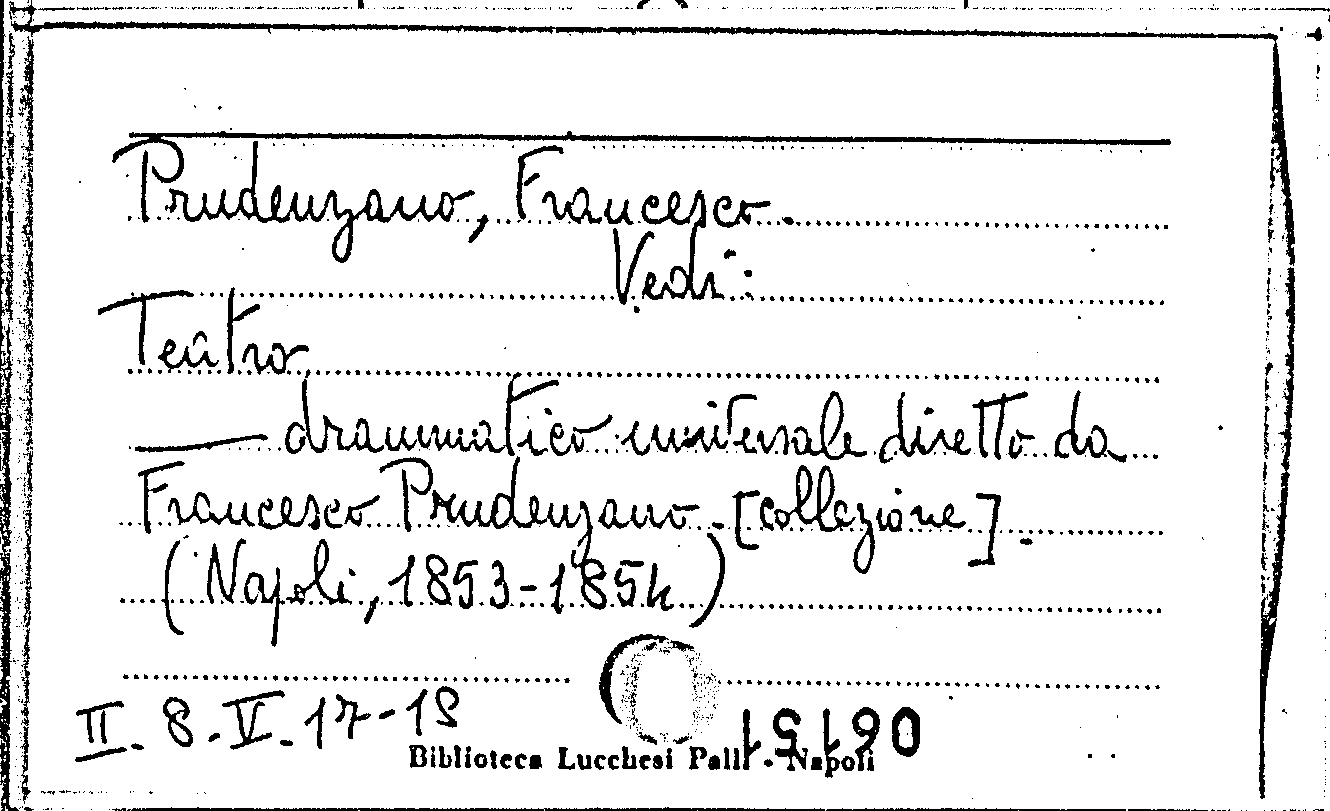 Prudenzano, Francesco.
Vedi:
Teatro
— drammatico universale diretto da
Francesco Prudenzano. [collezione].
(Napoli, 1853-1854)
II. 8. V. 17-18
06151
Biblioteca Lucchesi Palli - Napoli